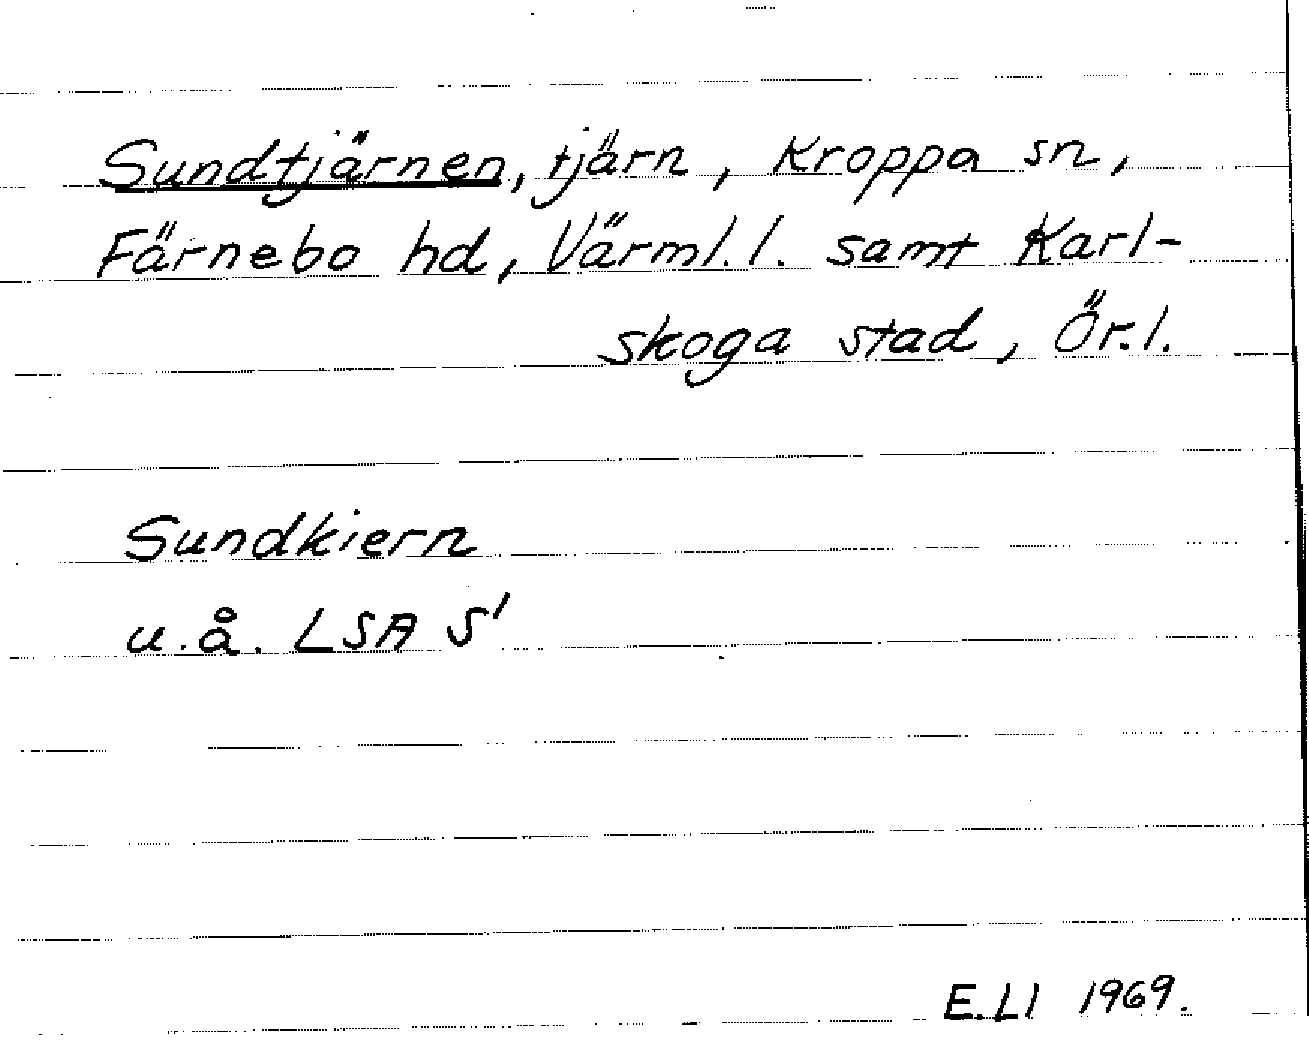 Sundtjärnen, tjärn, Kroppa sn,
Färnebo hd, Värml. l. samt Karl-
skoga stad, Ör. l.
Sundkiern
u.å. LSA S'
E.Ll 1969.